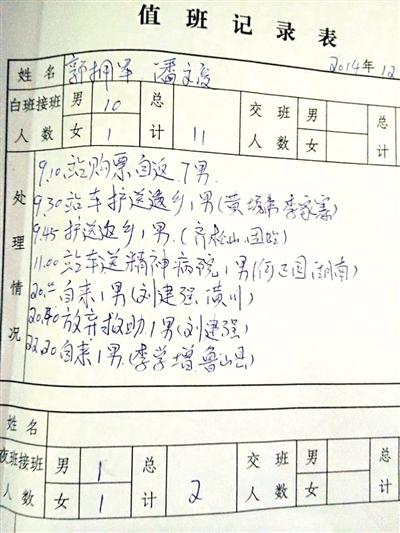 值班记录表
2014年12
姓名 郭拥军 潘文俊
白班接班人数 男 10 女 1 总计 11 交班人数 男 女 总计
处理情况
9.10 站购票自返 7男
9.30 站车护送返乡1男(黄 李家寨)
9.45 护送返乡1男.(齐松山.固始)
11.00 站车送精神病院1男(何正国湖南)
自来1男(刘建强.潢川)
20.40 放弃救助1男(刘建强)
22.20 自来1男.(李学增.鲁山县)
姓名
夜班接班人数 男 1 女 1 总计 2 交班人数 男 女 总计